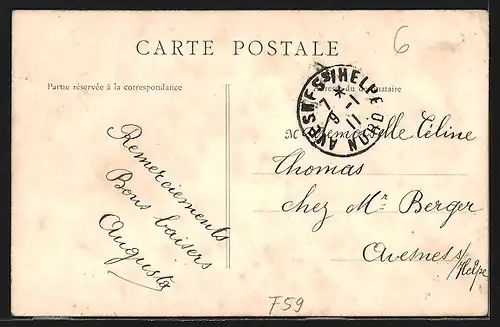 CARTE POSTALE
6
Partie réservée à la correspondance
Adresse du destinataire
AVESNES S/ HELPE
NORD
7-1
9
11
Remerciements
Bons baisers
Augusta
Mademoiselle Céline
Thomas
chez Mr Berger
Avesnes s/Helpe
F59